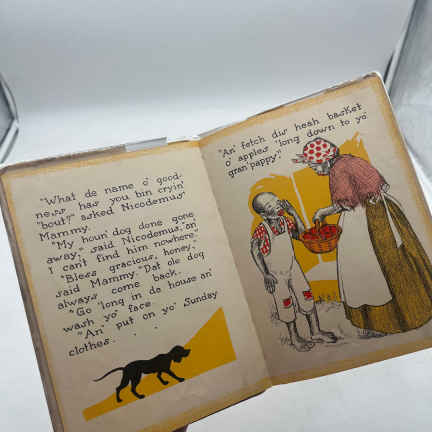 "What de name o' good-
ness has you bin cryin'
'bout?" asked Nicodemus'
Mammy.
"My houn' dog done gone
away," said Nicodemus, "an'
I can't find him nowhere."
"Bless gracious, honey,"
said Mammy. "Dat ole dog
always come back.
"Go 'long in de house an'
wash yo' face.
"An' put on yo' Sunday
clothes. . .
"An' fetch dis heah basket
o' apples 'long down to yo'
gran'pappy."